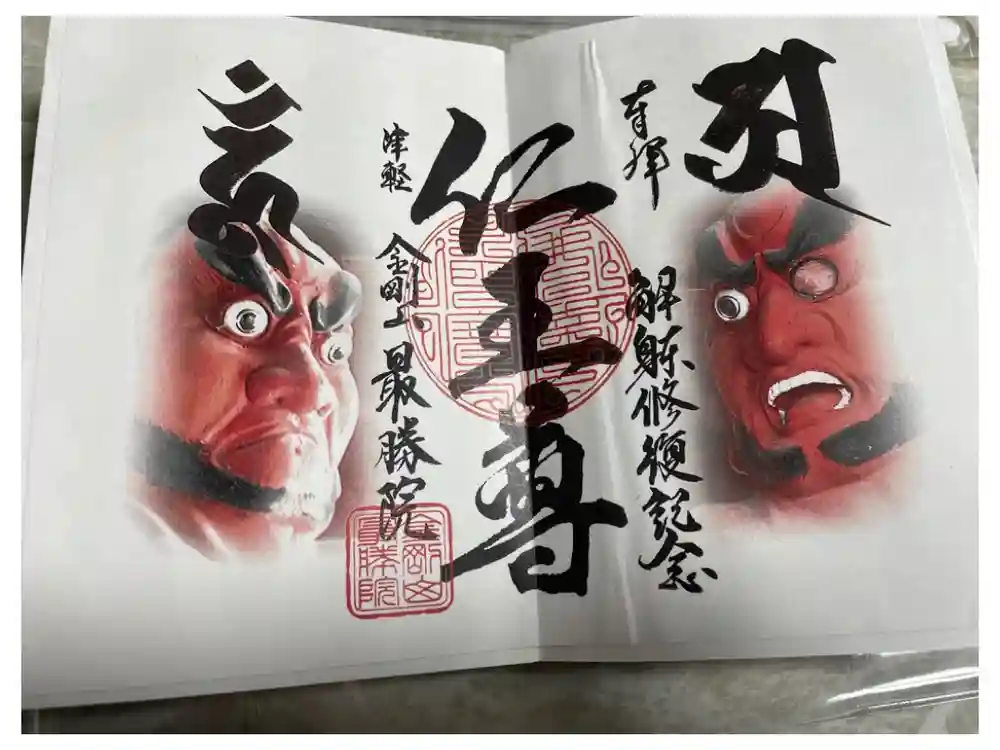 奉拝
解体修復記念
仁王尊
津軽
金剛山
最勝院
金剛山
最勝院